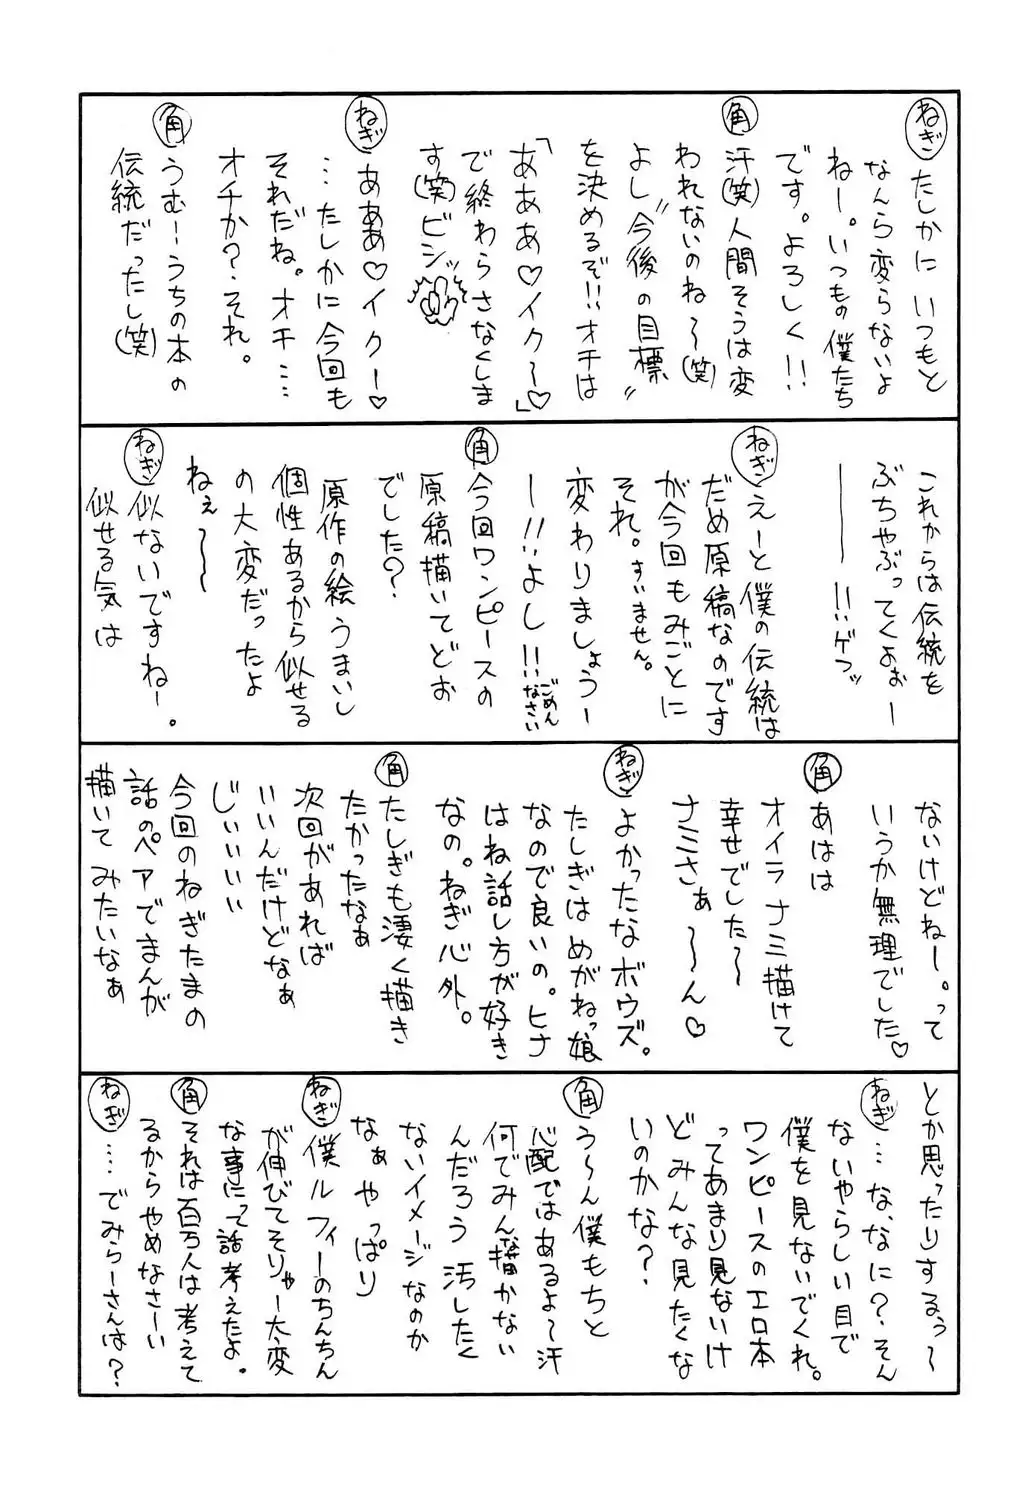 ねぎ たしかにいつもと
なんら変らないよ
ねー。いつもの僕たち
です。よろしく!!
角 汗(笑)人間そうは変
われないのね〜(笑)
よし〝今後の目標〟
を決めるぞ!!オチは
「あああ♡イク〜♡」
で終わらさなくしま
す(笑)ビシッ
ねぎ あああ♡イクー♡
…たしかに今回も
それだね。オチ…
オチか?それ。
角 うむーうちの本の
伝統だったし(笑)
これからは伝統を
ぶちゃぶってくよぉー
───!!ゲフッ
ねぎ えーと僕の伝統は
だめ原稿なのです
が今回もみごとに
それ。すいません。
変わりましょうー
ー!!よし!!ごめんなさい
角 今回ワンピースの
原稿描いてどお
でした?
原作の絵うまいし
個性あるから似せる
の大変だったよ
ねぇ〜〜
ねぎ 似ないですねー。
似せる気は
ないけどねー。って
いうか無理でした♡
角 あはは
オイラナミ描けて
幸せでした〜
ナミさぁ〜〜ん♡
ねぎ よかったなボウズ。
たしぎはめがねっ娘
なので良いの。ヒナ
はね話し方が好き
なの。ねぎ心外。
角 たしぎも凄く描き
たかったなぁ
次回があれば
いいんだけどなぁ
じぃぃぃぃ
今回のねぎたまの
話のペアでまんが
描いてみたいなぁ
とか思ったりするぅ〜
ねぎ …な、なに?そん
ないやらしい目で
僕を見ないでくれ。
ワンピースのエロ本
ってあまり見ないけ
どみんな見たくな
いのかな?
角 う〜ん僕もちと
心配ではあるよ〜汗
何でみんな描かない
んだろう汚したく
ないイメージなのか
なぁやっぱり
ねぎ 僕ルフィーのちんちん
が伸びてそりゃー大変
な事にって話考えたよ。
角 それは百万人は考えて
るからやめなさーい
ねぎ ……でみらーさんは?